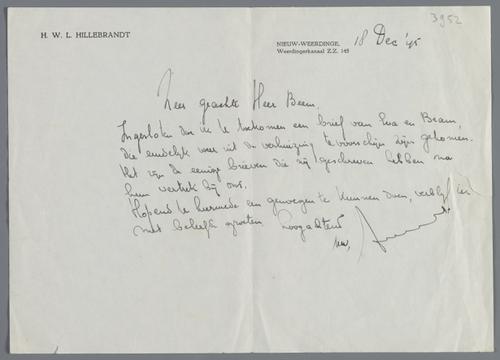 3952
H. W. L. HILLEBRANDT
NIEUW-WEERDINGE,
Weerdingerkanaal Z.Z. 145
18 Dec '45
Zeer geachte Heer Beem,
Ingesloten doe ik U toekomen een brief van Eva en Bram
die eindelijk weer uit de verhuizing te voorschijn zijn gekomen.
Het zijn de eenige brieven die zij geschreven hebben na
hun vertrek bij ons.
Hopend U hiermede een genoegen te kunnen doen, verblijf ik
met beleefde groeten, Hoogachtend